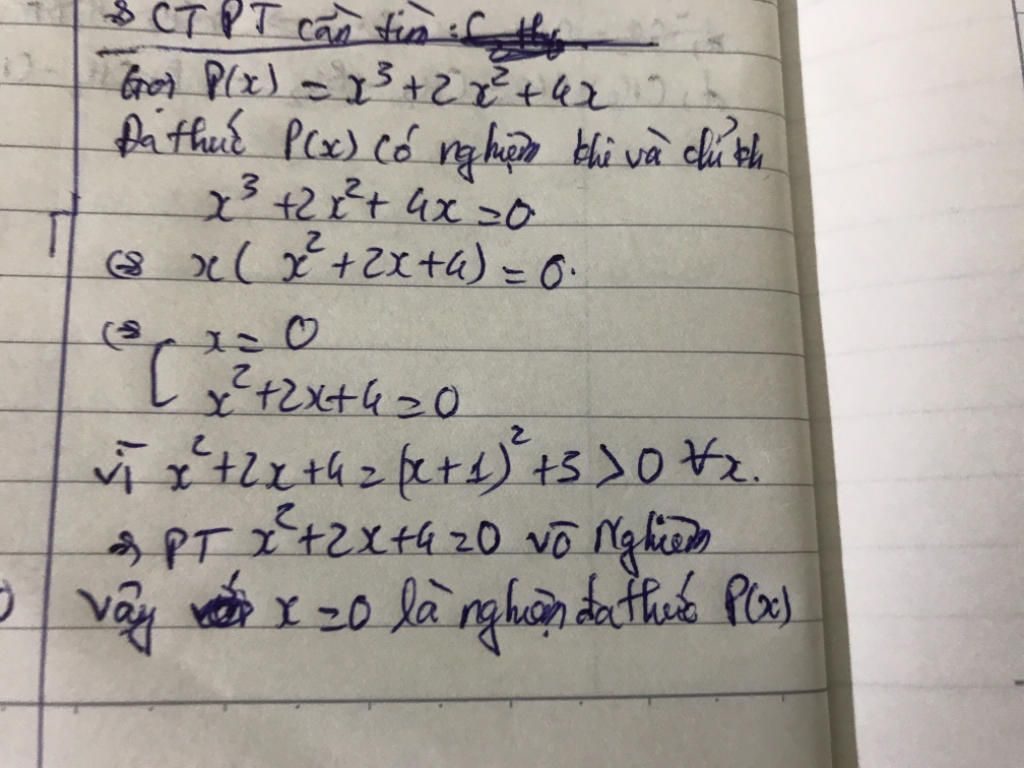 ⇒ CTPT cần tìm:
Gọi P(x) = x³ + 2x² + 4x
Đa thức P(x) có nghiệm khi và chỉ kh
x³ + 2x² + 4x = 0
⇔ x( x² + 2x + 4) = 0.
⇔ [ x = 0
x² + 2x + 4 = 0
vì x² + 2x + 4 = (x + 1)² + 3 > 0 ∀x.
⇒ PT x² + 2x + 4 = 0 vô nghiệm
Vậy x = 0 là nghiệm đa thức P(x)